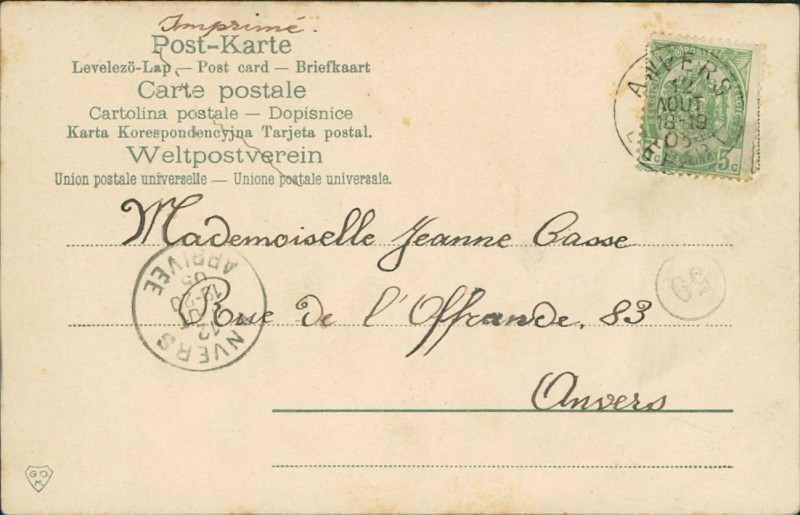 Imprimé.
Post-Karte
Levelező-Lap — Post card — Briefkaart
Carte postale
Cartolina postale — Dopisnice
Karta Korespondencyjna Tarjeta postal.
Weltpostverein
Union postale universelle — Unione postale universale.
ANVERS
12
AOUT
18-19
05
5c 5c
Mademoiselle Jeanne Casse
Rue de l'Offrande. 83
Anvers
ANVERS
ARRIVÉE
05
50
G.O.
M.